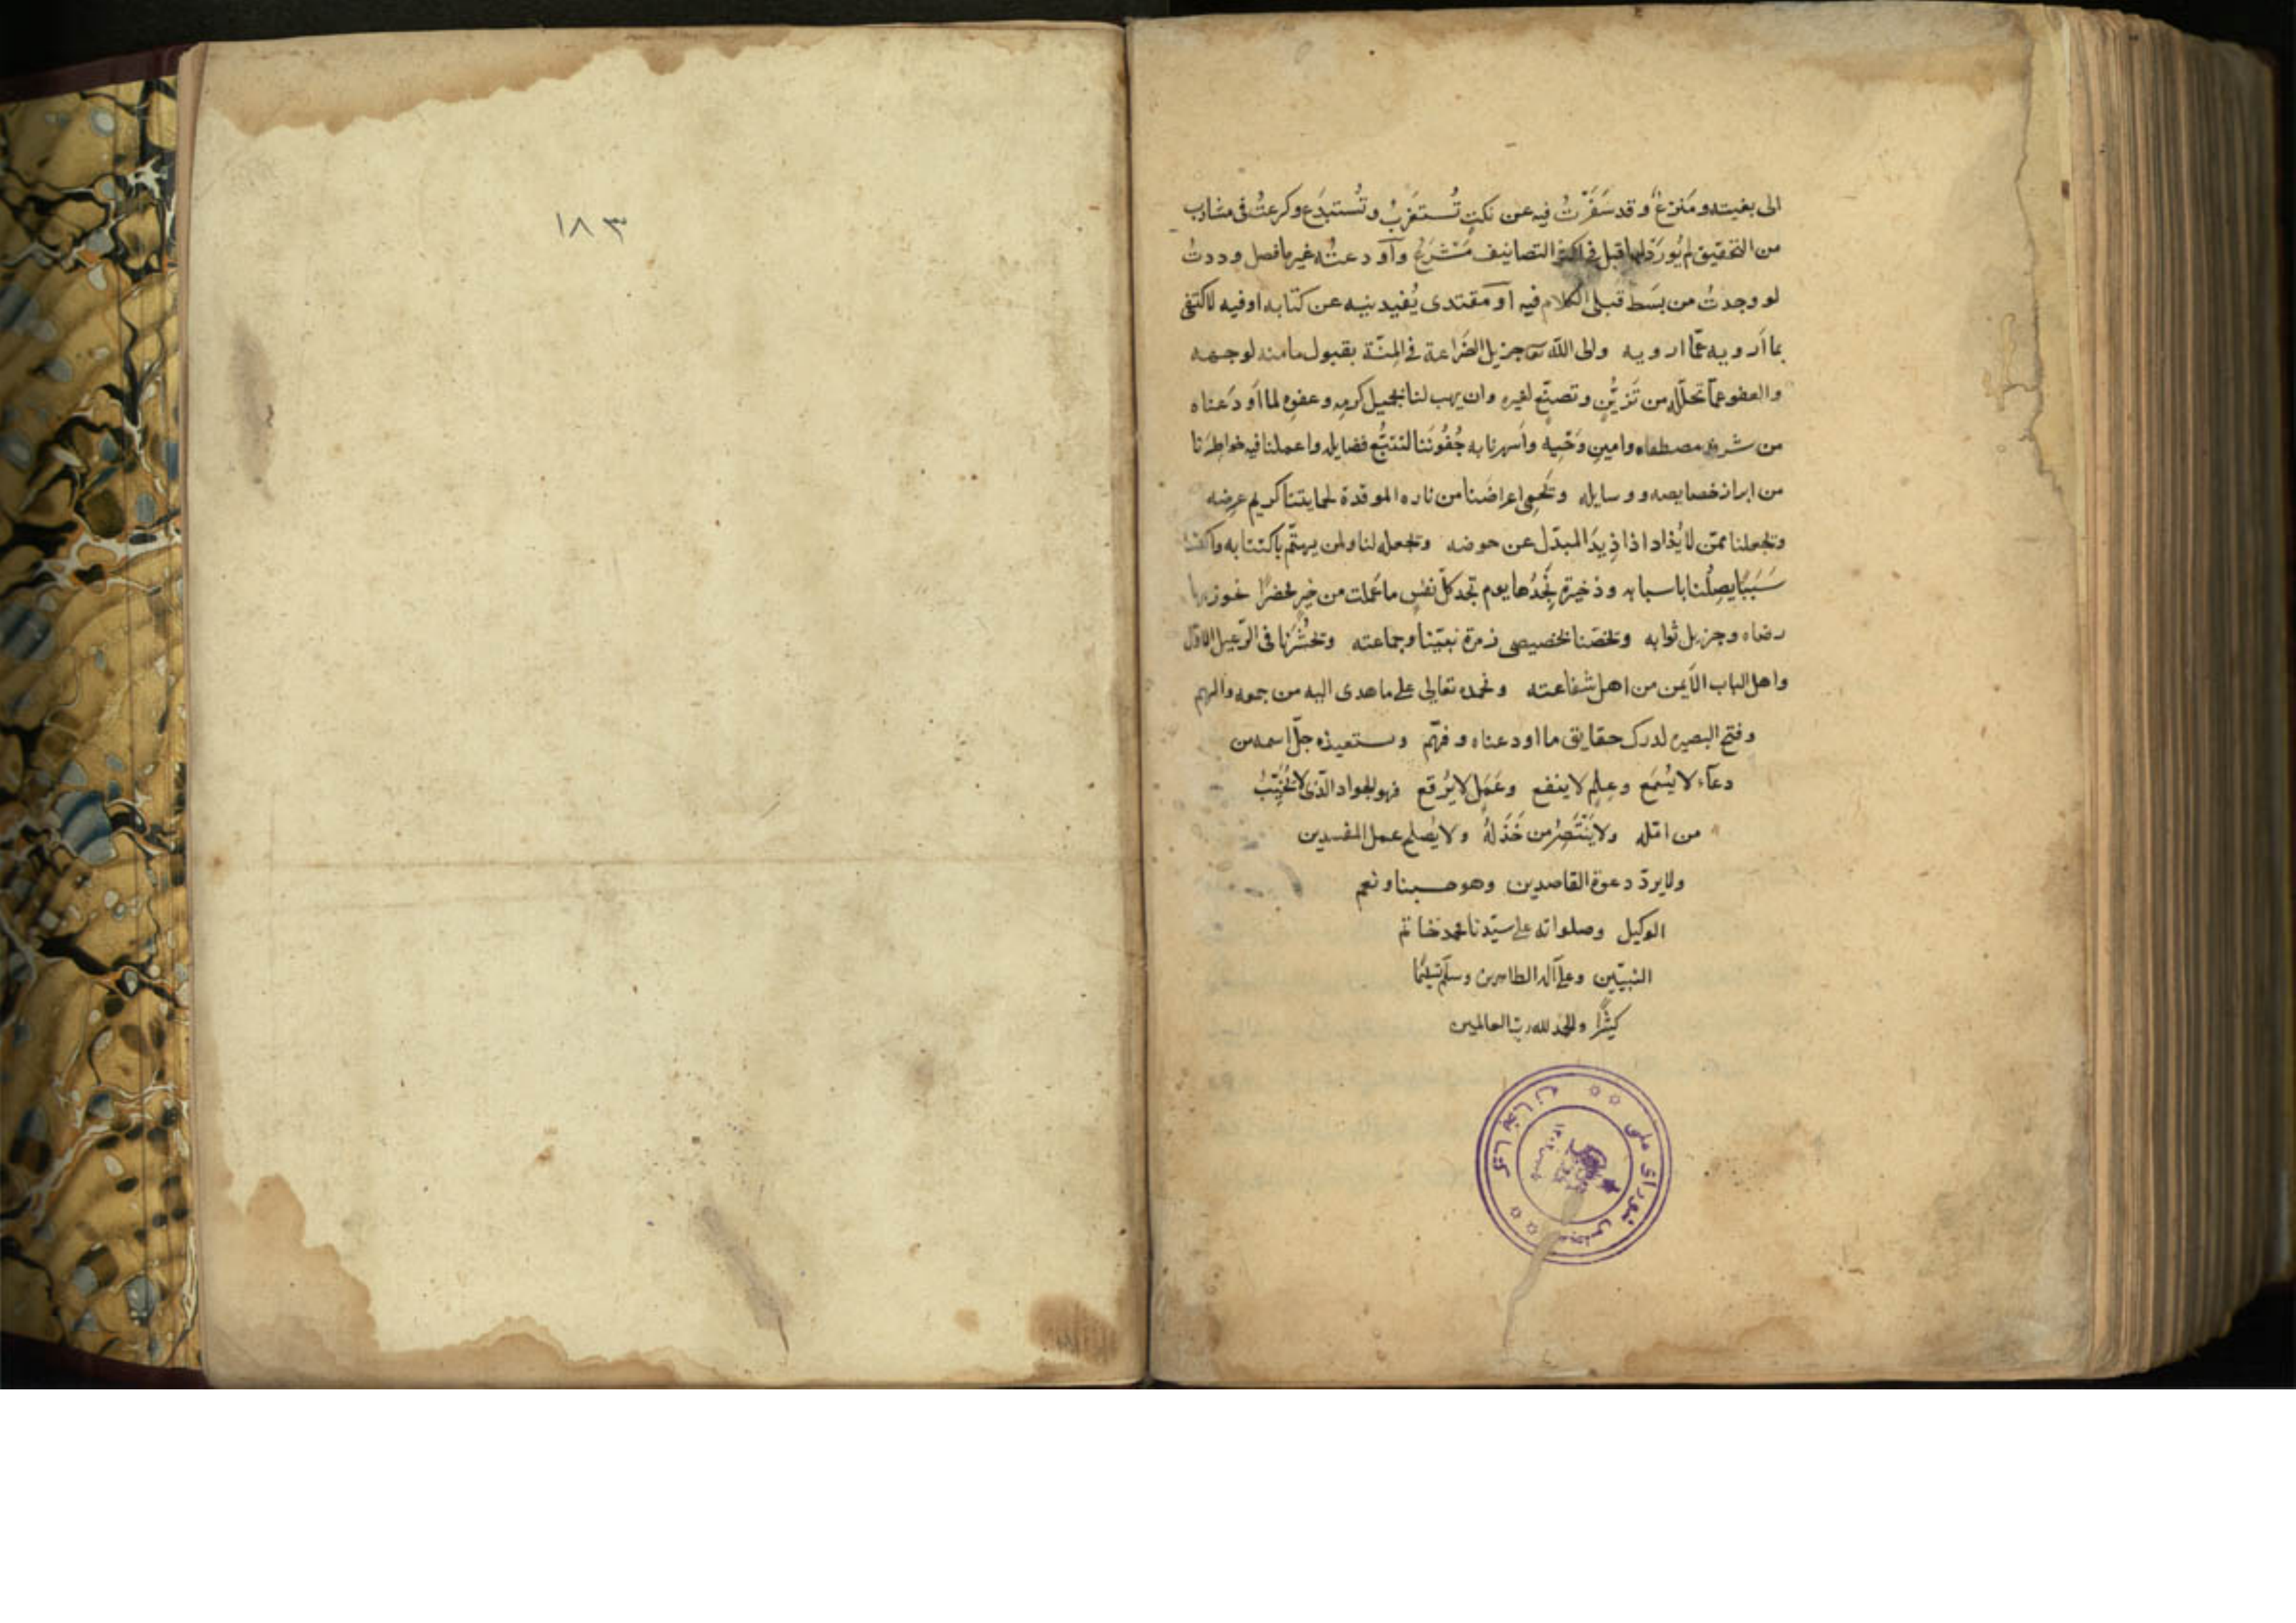 الى بغيته ومنزعٌ وقد سَفَرْتُ فيه عن نكتٍ تُستغرَبُ وتُستبدَع وكرعتُ فى مشارب
من التحقيق لم يُورَد لها قبل فى اكثر التصانيف مَشْرَعٌ وأودعته غير ما فصل وددتُ
لو وجدتُ من بسَط قبلى الكلام فيه او مقتدى يُفيدنيه عن كتابه او فيه لاكتفى
بما أرويه عمّا ارويه والى الله تع جزيل الضَراعة فى المِنّة بقبول ما منه لوجهه
والعفو عمّا تخلّله من تَزيُّنٍ وتصنّع لغيره وان يهب لنا بجميل كرمه وعفوه لما أودَعناه
من شرف مصطفاه وامين وَحْيِه وأسهرنا به جُفُونَنا لتتبُّع فضايله واعملنا فيه خواطِرَنا
من ابراز خصايصه ووسايله وتحمى اعراضَنا من ناره الموقدة لحمايتنا كريم عرضه
وتجعلنا ممّن لا يُذاد اذا ذِيدَ المبدّل عن حوضه وتجعله لنا ولمن يهتمّ باكتتابه
سَبَبًا يصِلُنا باسبابه وذخيرة نَجِدُها يوم تجد كلّ نفسٍ ما عَمِلت من خيرٍ محضرًا نحوز بها
رضاه وجزيل ثوابه وتخصّنا بخصيصى زمرة نبيّنا وجماعته وتحشُرَنا فى الرّعيل الاوّل
واهل الباب الأيمن من اهل شفاعته ونحمده تعالى على ما هدى اليه من جمعه والهم
وفتح البصيره لدرك حقايق ما اودعناه وفهّم ونستعيذه جلّ اسمه من
دعآء لا يُسْمَع وعِلمٍ لا ينفع وعَمَلٍ لا يُرْفع فهو الجواد الّذى لا يُخَيِّبُ
من امّله ولا يَنْتَصِرُ من خَذَلَهُ ولا يُصلح عمل المفسدين
ولا يردّ دعوة القاصدين وهو حسبنا ونعم
الوكيل وصلواته على سيّدنا محمد خاتم
النبيّين وعلى آله الطاهرين وسلّم تسليمًا
كثيرًا والحمد لله ربّ العالمين
كتابخانه مجلس شورای ملی
١٨٣